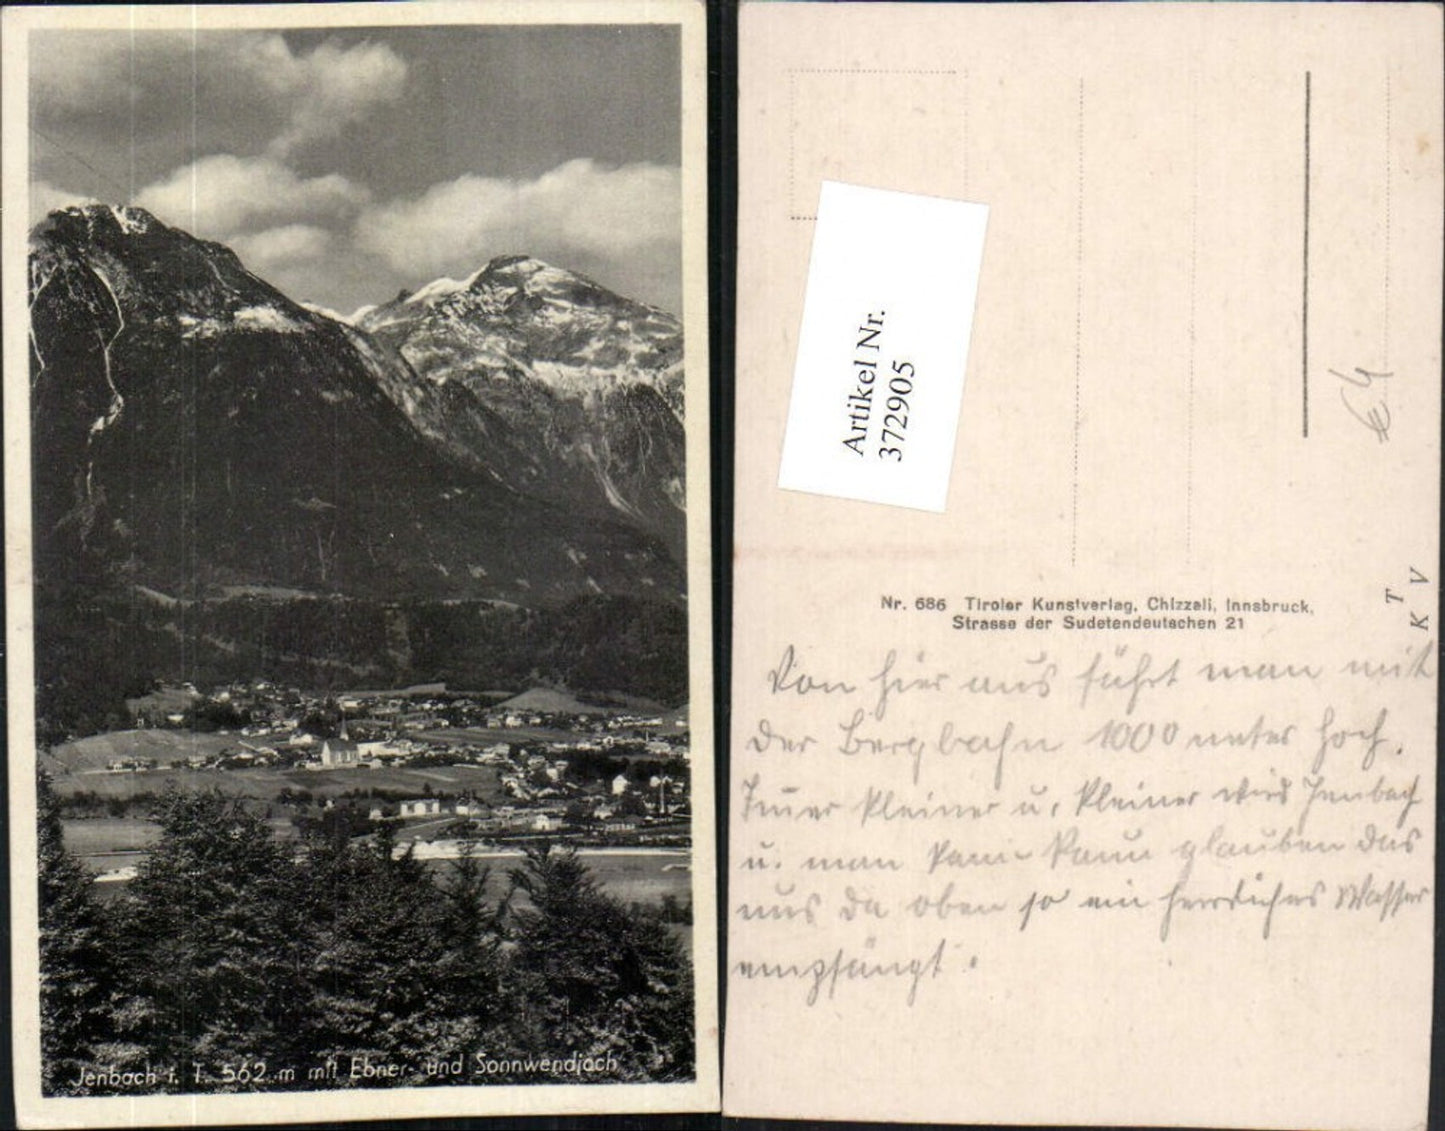 Jenbach i. T. 562 m mit Ebner- und Sonnwendjoch
Artikel Nr.
372905
€ 4
T
K V
Nr. 686 Tiroler Kunstverlag, Chizzali, Innsbruck,
Strasse der Sudetendeutschen 21
Von hier aus führt man mit
der Bergbahn 1000 meter hoch.
Immer kleiner u. kleiner wird Jenbach
u. man kann kaum glauben das
uns da oben so ein herrliches Wasser
empfängt.